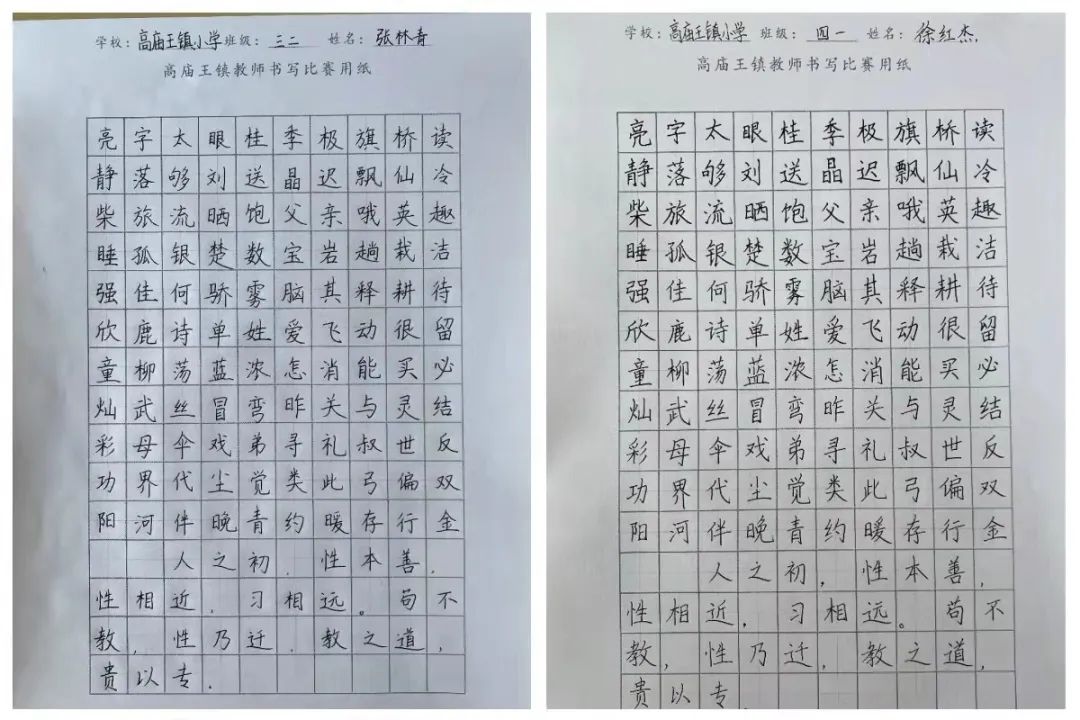 学校：高庙王镇小学 班级：三二 姓名：张林青
高庙王镇教师书写比赛用纸
亮字太眼桂季极旗桥读
静落够刘送晶迟飘仙冷
柴旅流晒饱父亲哦英趣
睡孤银楚数宝岩趟栽洁
强佳何骄雾脑其释耕待
欣鹿诗单姓爱飞动很留
童柳荡蓝浓怎消能买必
灿武丝冒弯昨关与灵结
彩母伞戏弟寻礼叔世反
功界代尘觉类此弓偏双
阳河伴晚青约暖存行金
人之初，性本善，
性相近，习相远。苟不
教，性乃迁，教之道，
贵以专．
学校：高庙王镇小学 班级：四一 姓名：徐红杰．
高庙王镇教师书写比赛用纸
亮字太眼桂季极旗桥读
静落够刘送晶迟飘仙冷
柴旅流晒饱父亲哦英趣
睡孤银楚数宝岩趟栽洁
强佳何骄雾脑其释耕待
欣鹿诗单姓爱飞动很留
童柳荡蓝浓怎消能买必
灿武丝冒弯昨关与灵结
彩母伞戏弟寻礼叔世反
功界代尘觉类此弓偏双
阳河伴晚青约暖存行金
人之初，性本善，
性相近，习相远。苟不
教，性乃迁，教之道，
贵以专